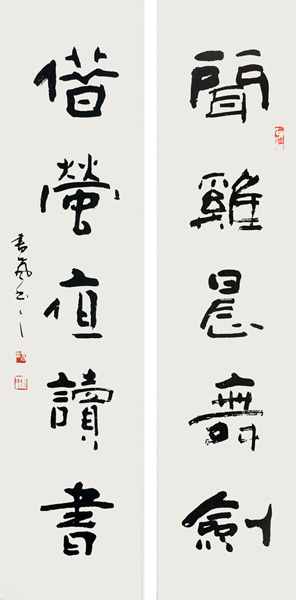 聞雞晨舞劍
借螢夜讀書